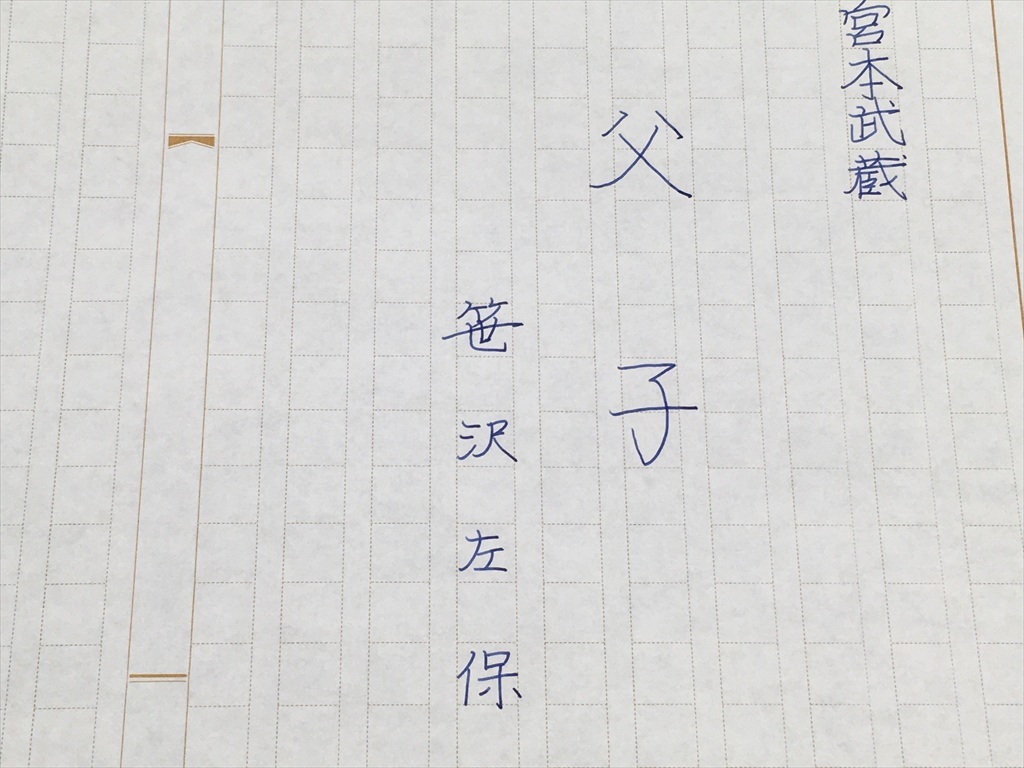 宮本武蔵
父子
笹沢左保